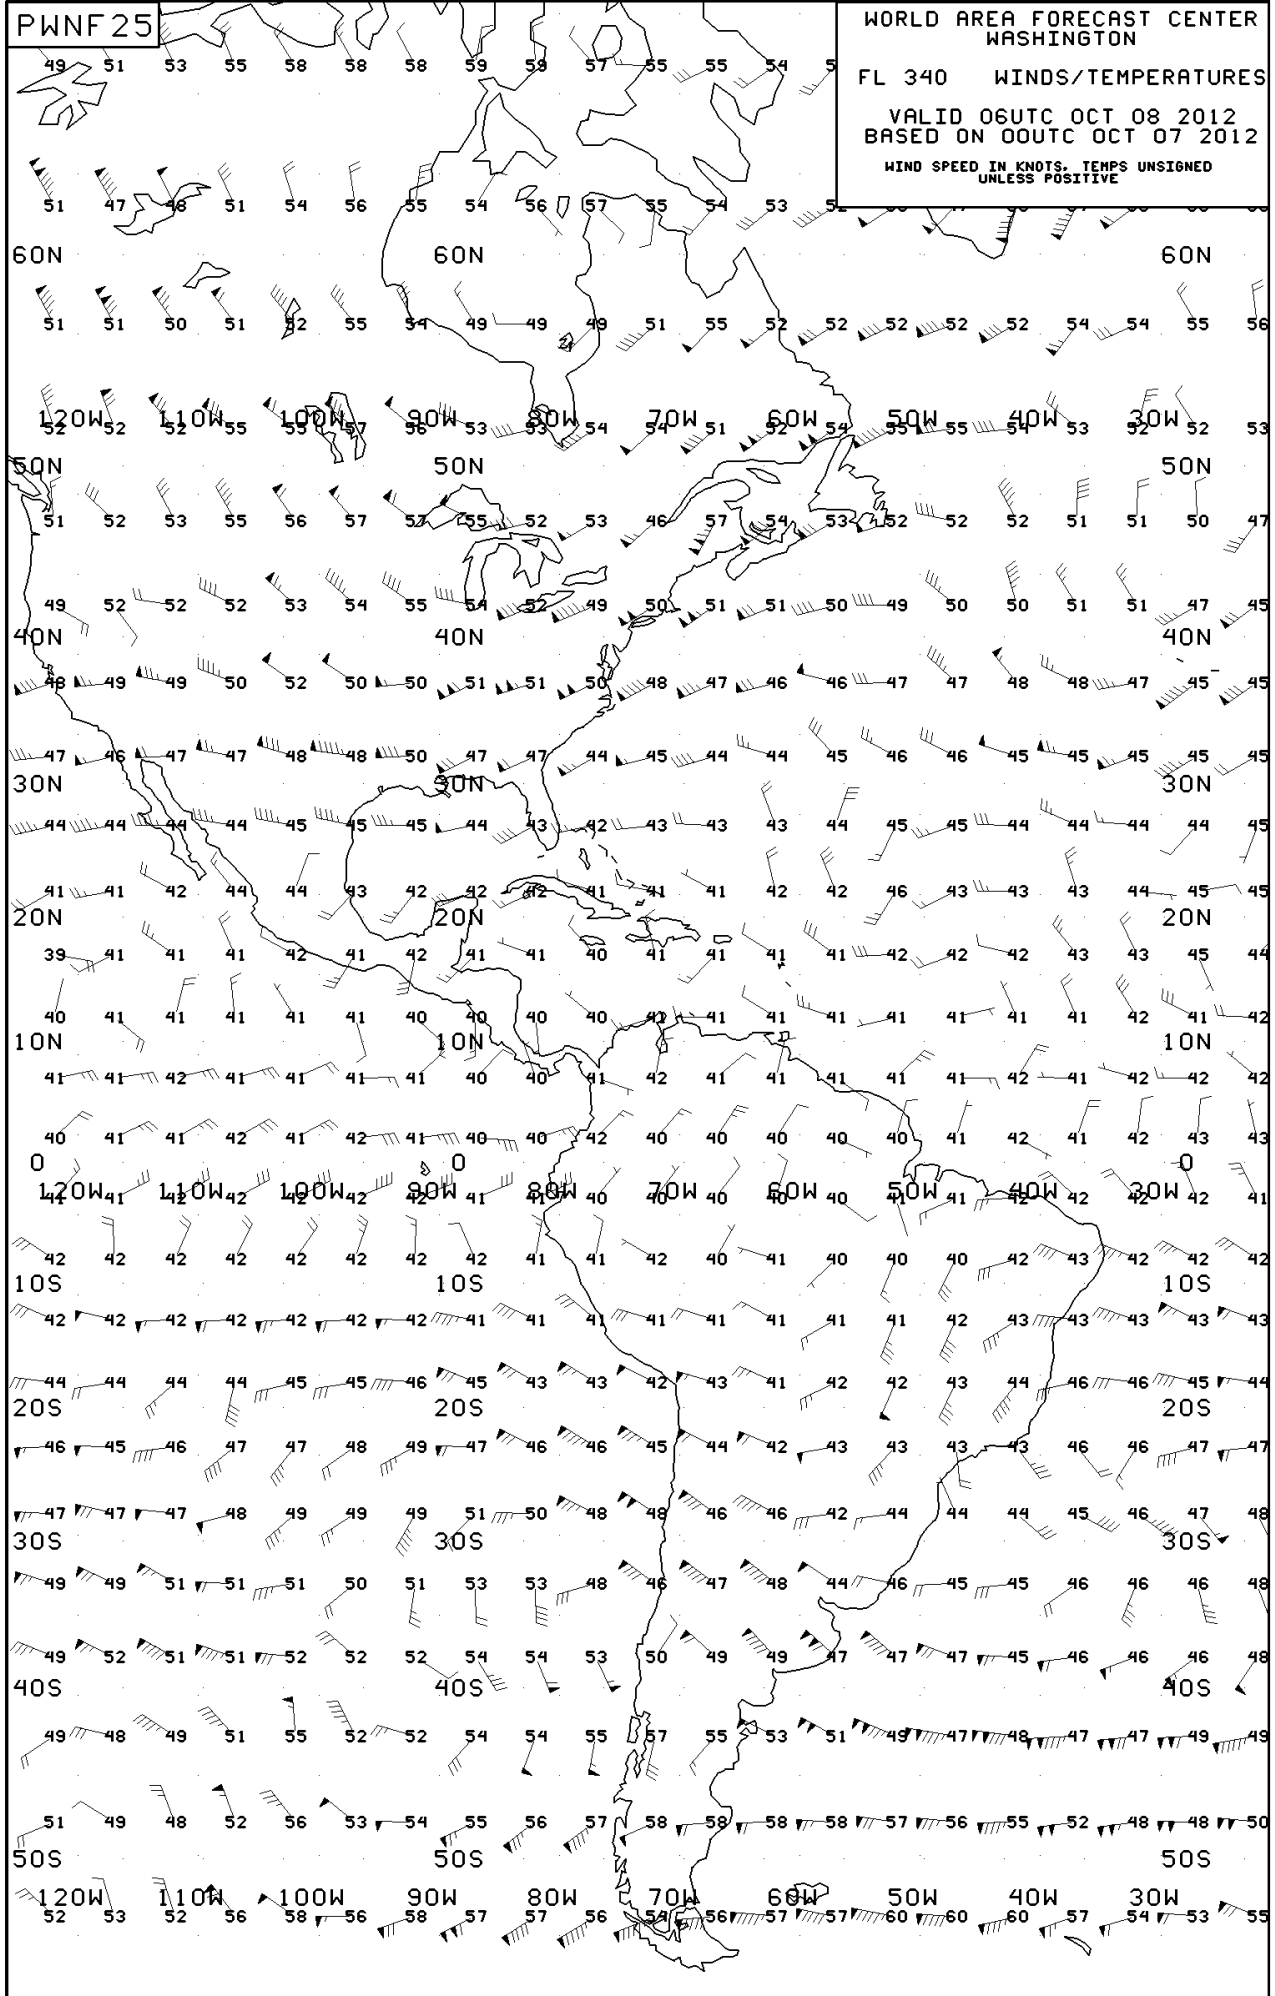 PWNF25
WORLD AREA FORECAST CENTER
WASHINGTON
FL 340 WINDS/TEMPERATURES
VALID 06UTC OCT 08 2012
BASED ON 00UTC OCT 07 2012
WIND SPEED IN KNOTS, TEMPS UNSIGNED
UNLESS POSITIVE
49 51 53 55 58 58 58 59 59 57 55 55 54
51 47 48 51 54 56 55 54 56 57 55 54 53 52
60N 60N 60N
51 51 50 51 52 55 54 49 49 49 51 55 52 52 52 52 52 54 54 55 56
120W 110W 100W 90W 80W 70W 60W 50W 40W 30W
52 52 52 55 55 57 56 53 53 54 54 51 52 54 55 55 54 53 52 52 53
50N 50N 50N
51 52 53 55 56 57 57 55 52 53 46 57 54 53 52 52 52 51 51 50 47
49 52 52 52 53 54 55 54 52 49 50 51 51 50 49 50 50 51 51 47 45
40N 40N 40N
48 49 49 50 52 50 50 51 51 50 48 47 46 46 47 47 48 48 47 45 45
47 46 47 47 48 48 50 47 47 44 45 44 44 45 46 46 45 45 45 45 45
30N 30N 30N
44 44 44 44 45 45 45 44 43 42 43 43 43 44 45 45 44 44 44 44 45
41 41 42 44 44 43 42 42 42 41 41 41 42 42 46 43 43 43 44 45 45
20N 20N 20N
39 41 41 41 42 41 42 41 41 40 41 41 41 41 42 42 42 43 43 45 44
40 41 41 41 41 41 40 40 40 40 42 41 41 41 41 41 41 41 42 41 42
10N 10N 10N
41 41 42 41 41 41 41 40 40 41 42 41 41 41 41 41 42 41 42 42 42
40 41 41 42 41 42 41 40 40 42 40 40 40 40 40 41 42 41 42 43 43
0 0 0
120W 110W 100W 90W 80W 70W 60W 50W 40W 30W
41 41 42 42 42 42 42 41 41 40 40 40 40 40 41 41 42 42 42 42 41
42 42 42 42 42 42 42 42 41 41 42 40 41 40 40 40 42 43 42 42 42
10S 10S 10S
42 42 42 42 42 42 42 41 41 41 41 41 41 41 41 42 43 43 43 43 43
44 44 44 44 45 45 46 45 43 43 42 43 41 42 42 43 44 46 46 45 44
20S 20S 20S
46 45 46 47 47 48 49 47 46 46 45 44 42 43 43 43 43 46 46 47 47
47 47 47 48 49 49 49 51 50 48 48 46 46 42 44 44 44 45 46 47 48
30S 30S 30S
49 49 51 51 51 50 51 53 53 48 46 47 48 44 46 45 45 46 46 46 48
49 52 51 51 52 52 52 54 54 53 50 49 49 47 47 47 45 46 46 46 48
40S 40S 40S
49 48 49 51 55 52 52 54 54 55 57 55 53 51 49 47 48 47 47 49 49
51 49 48 52 56 53 54 55 56 57 58 58 58 58 57 56 55 52 48 48 50
50S 50S 50S
120W 110W 100W 90W 80W 70W 60W 50W 40W 30W
52 53 52 56 58 56 58 57 57 56 54 56 57 57 60 60 60 57 54 53 55